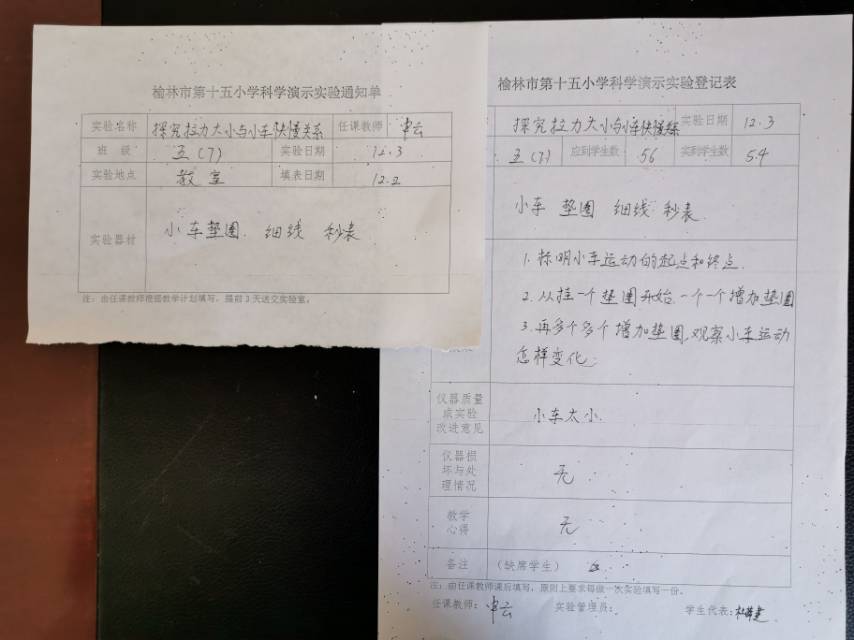 榆林市第十五小学科学演示实验通知单
实验名称 探究拉力大小与小车快慢关系 任课教师 申云
班 级 五(7) 实验日期 12.3
实验地点 教室 填表日期 12.2
实验器材 小车 垫圈 细线 秒表
注：由任课教师根据教学计划填写，提前3天送交实验室。
榆林市第十五小学科学演示实验登记表
探究拉力大小与小车快慢关系 实验日期 12.3
五(7) 应到学生数 56 实到学生数 54
小车 垫圈 细线 秒表
1. 标明小车运动的起点和终点.
2. 从挂一个垫圈开始.一个一个增加垫圈
3. 再多个多个增加垫圈,观察小车运动
怎样变化.
仪器质量
或实验
改进意见
小车太小.
仪器损
坏与处
理情况
无
教学
心得
无
备注 (缺席学生)
注：由任课教师课后填写，原则上要求每做一次实验填写一份。
任课教师：申云 实验管理员： 学生代表：